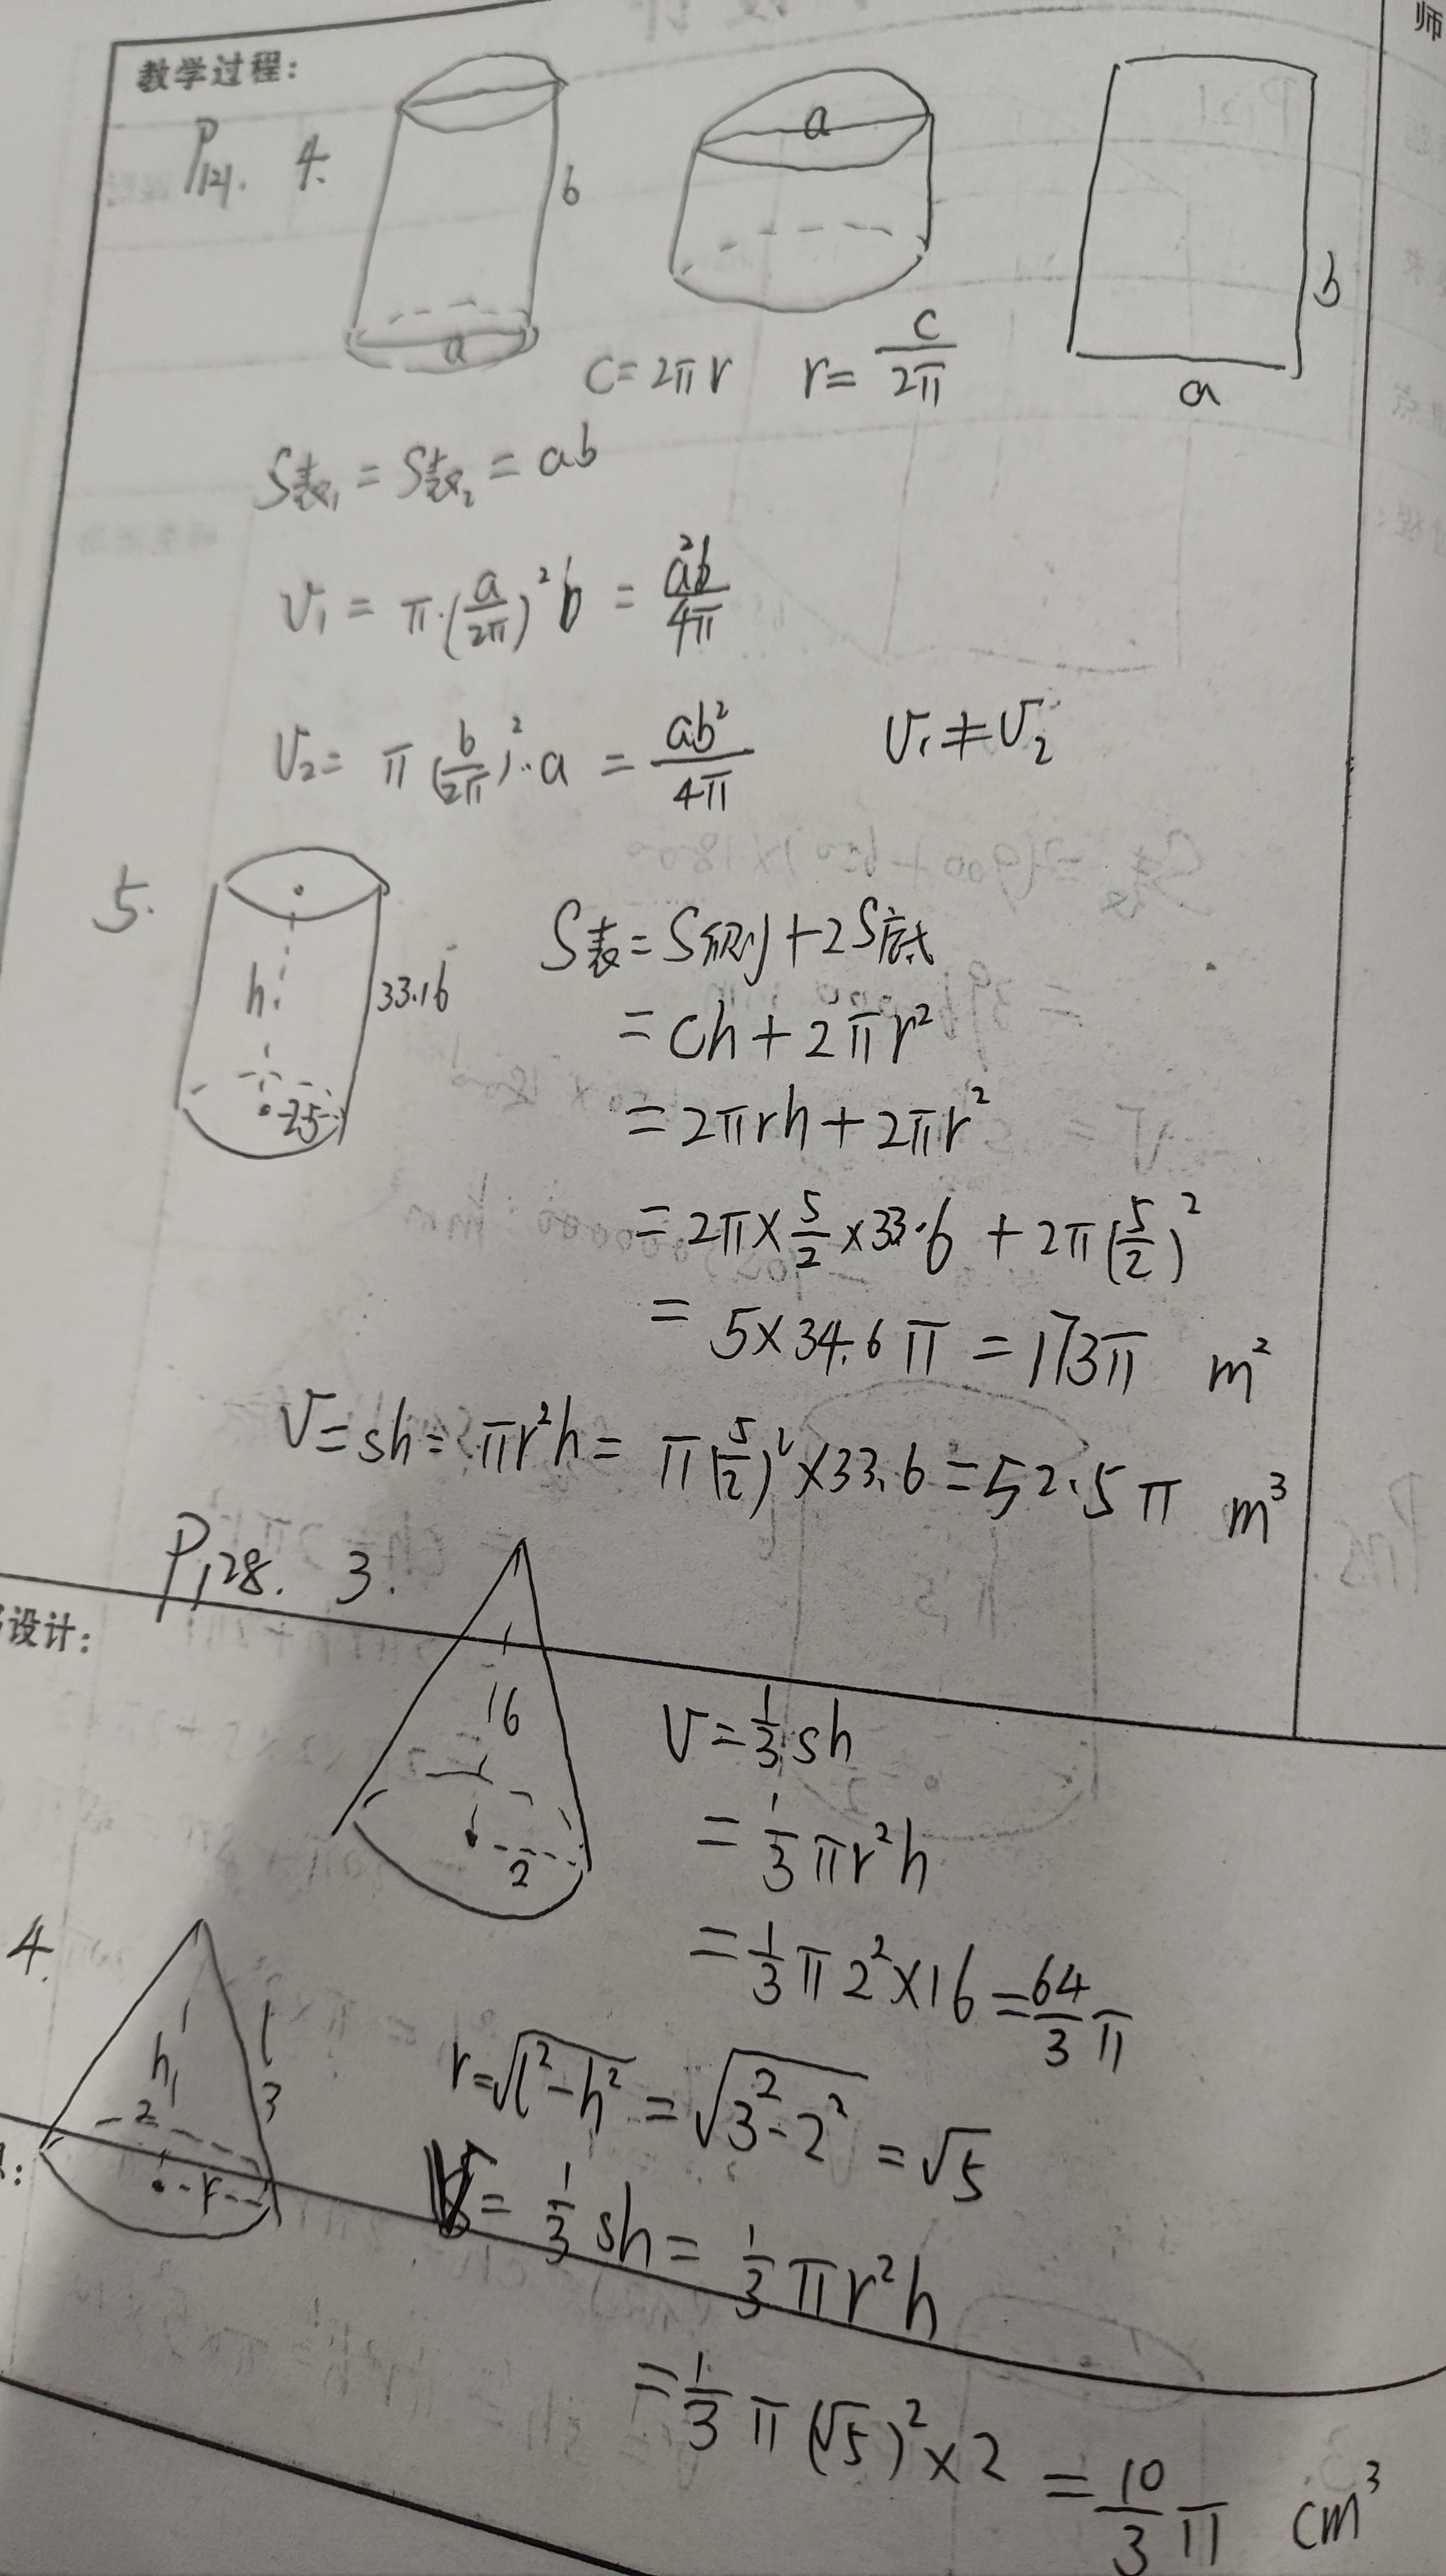 师
教学过程:
P121. 4.
b
a
a
b
a
C=2πr r=C/2π
S表1=S表2=ab
V1=π·(a/2π)²b=a²b/4π
V2=π(b/2π)²·a=ab²/4π V1≠V2
5.
h
33.16
25
S表=S侧+2S底
=Ch+2πr²
=2πrh+2πr²
=2π×5/2×33.6+2π(5/2)²
=5×34.6π=173π m²
V=sh=πr²h=π(5/2)²×33.6=52.5π m³
P128. 3.
设计:
16
2
V=1/3sh
=1/3πr²h
=1/3π2²×16=64/3π
4.
h
l
2
3
r
r=√(l²-h²)=√(3²-2²)=√5
V=1/3sh=1/3πr²h
=1/3π(√5)²×2=10/3π cm³